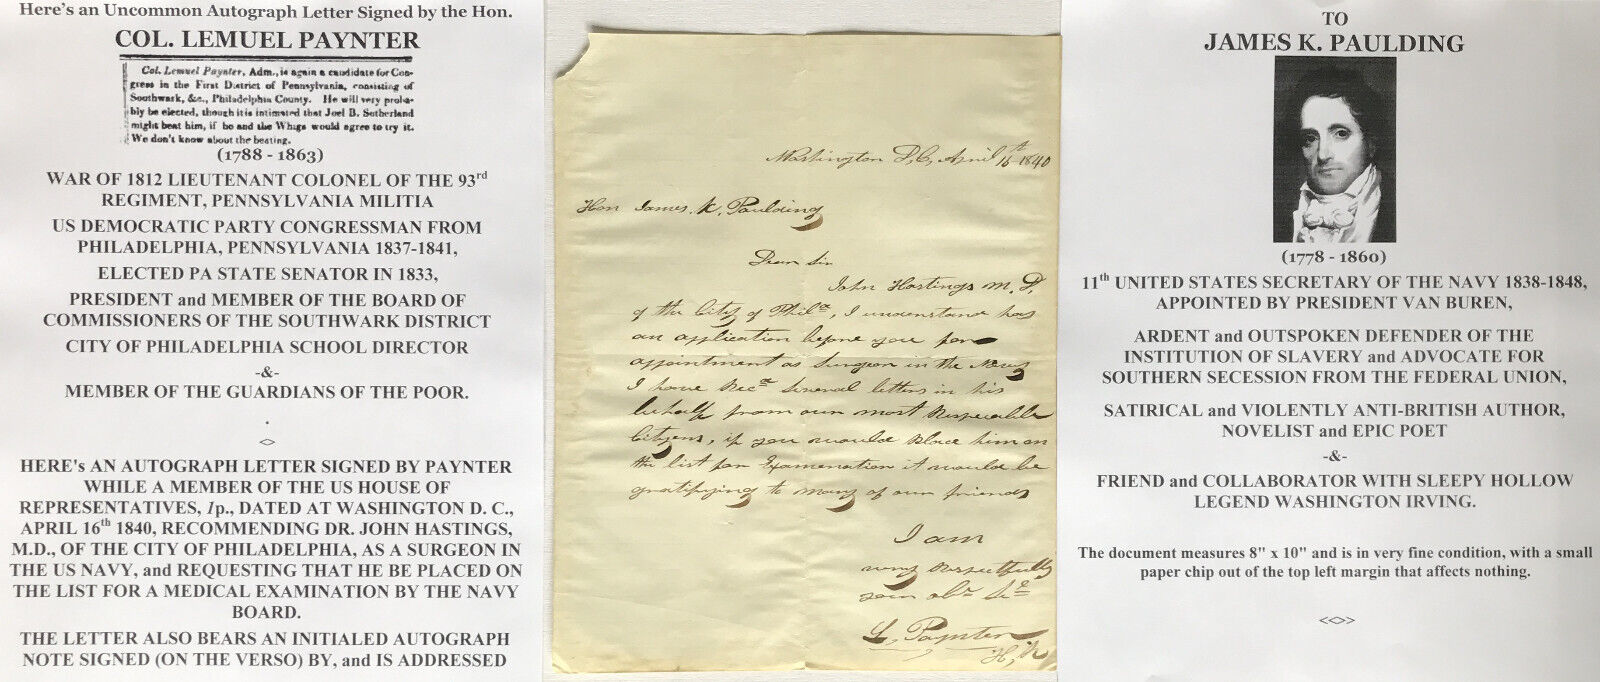 Here's an Uncommon Autograph Letter Signed by the Hon.
COL. LEMUEL PAYNTER
Col. Lemuel Paynter, Adm., is again a candidate for Con-
gress in the First District of Pennsylvania, consisting of
Southwark, &c., Philadelphia County. He will very proba-
bly be elected, though it is intimated that Joel B. Sutherland
might beat him, if he and the Whigs would agree to try it.
We don't know about the beating.
(1788 - 1863)
WAR OF 1812 LIEUTENANT COLONEL OF THE 93rd
REGIMENT, PENNSYLVANIA MILITIA
US DEMOCRATIC PARTY CONGRESSMAN FROM
PHILADELPHIA, PENNSYLVANIA 1837-1841,
ELECTED PA STATE SENATOR IN 1833,
PRESIDENT and MEMBER OF THE BOARD OF
COMMISSIONERS OF THE SOUTHWARK DISTRICT
CITY OF PHILADELPHIA SCHOOL DIRECTOR
-&-
MEMBER OF THE GUARDIANS OF THE POOR.
.
<>
HERE's AN AUTOGRAPH LETTER SIGNED BY PAYNTER
WHILE A MEMBER OF THE US HOUSE OF
REPRESENTATIVES, 1p., DATED AT WASHINGTON D. C.,
APRIL 16th 1840, RECOMMENDING DR. JOHN HASTINGS,
M.D., OF THE CITY OF PHILADELPHIA, AS A SURGEON IN
THE US NAVY, and REQUESTING THAT HE BE PLACED ON
THE LIST FOR A MEDICAL EXAMINATION BY THE NAVY
BOARD.
THE LETTER ALSO BEARS AN INITIALED AUTOGRAPH
NOTE SIGNED (ON THE VERSO) BY, and IS ADDRESSED
Washington D,C, April 16th 1840
Hon James. K. Paulding
Dear Sir
John Hastings M. D.
of the City of Phila, I understand has
an application before you for
appointment as Surgeon in the Navy
I have Recd Several letters in his
behalf from our most Respectable
Citizens, if you would place him on
the list for Examenation it would be
gratifying to many of our friends
I am
very Respectfully
your obt St
L, Paynter
H, R
TO
JAMES K. PAULDING
(1778 - 1860)
11th UNITED STATES SECRETARY OF THE NAVY 1838-1848,
APPOINTED BY PRESIDENT VAN BUREN,
ARDENT and OUTSPOKEN DEFENDER OF THE
INSTITUTION OF SLAVERY and ADVOCATE FOR
SOUTHERN SECESSION FROM THE FEDERAL UNION,
SATIRICAL and VIOLENTLY ANTI-BRITISH AUTHOR,
NOVELIST and EPIC POET
-&-
FRIEND and COLLABORATOR WITH SLEEPY HOLLOW
LEGEND WASHINGTON IRVING.
The document measures 8" x 10" and is in very fine condition, with a small
paper chip out of the top left margin that affects nothing.
<<>>